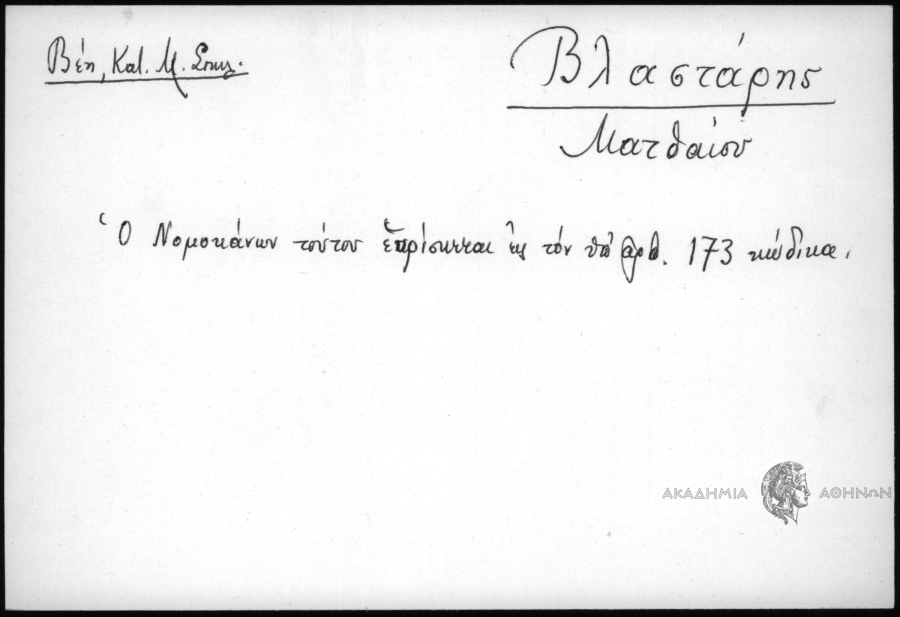 Βέη, Κατ. Μ. Σπηλ.
Βλαστάρης
Ματθαίου
Ὁ Νομοκάνων τούτου εὑρίσκεται εἰς τόν ὑπ' ἀριθ. 173 κώδικα.
ΑΚΑΔΗΜΙΑ ΑΘΗΝΩΝ